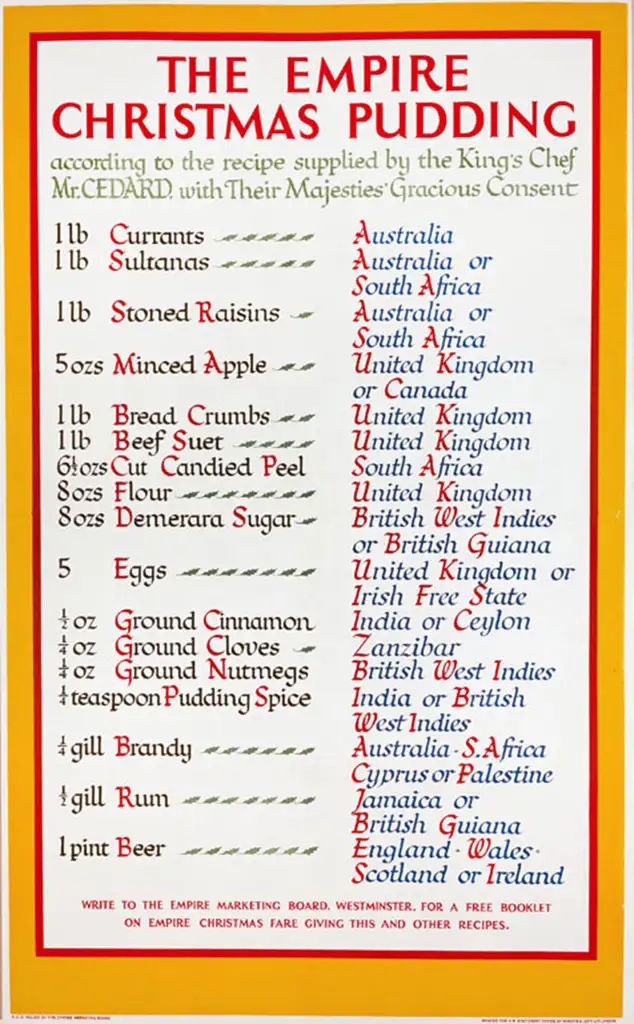 THE EMPIRE
CHRISTMAS PUDDING
according to the recipe supplied by the King's Chef
Mr. CEDARD, with Their Majesties' Gracious Consent
1 lb Currants Australia
1 lb Sultanas Australia or
South Africa
1 lb Stoned Raisins Australia or
South Africa
5 ozs Minced Apple United Kingdom
or Canada
1 lb Bread Crumbs United Kingdom
1 lb Beef Suet United Kingdom
6½ ozs Cut Candied Peel South Africa
8 ozs Flour United Kingdom
8 ozs Demerara Sugar British West Indies
or British Guiana
5 Eggs United Kingdom or
Irish Free State
½ oz Ground Cinnamon India or Ceylon
¼ oz Ground Cloves Zanzibar
¼ oz Ground Nutmegs British West Indies
¼ teaspoon Pudding Spice India or British
West Indies
¼ gill Brandy Australia · S. Africa
Cyprus or Palestine
½ gill Rum Jamaica or
British Guiana
1 pint Beer England · Wales ·
Scotland or Ireland
WRITE TO THE EMPIRE MARKETING BOARD, WESTMINSTER, FOR A FREE BOOKLET
ON EMPIRE CHRISTMAS FARE GIVING THIS AND OTHER RECIPES.